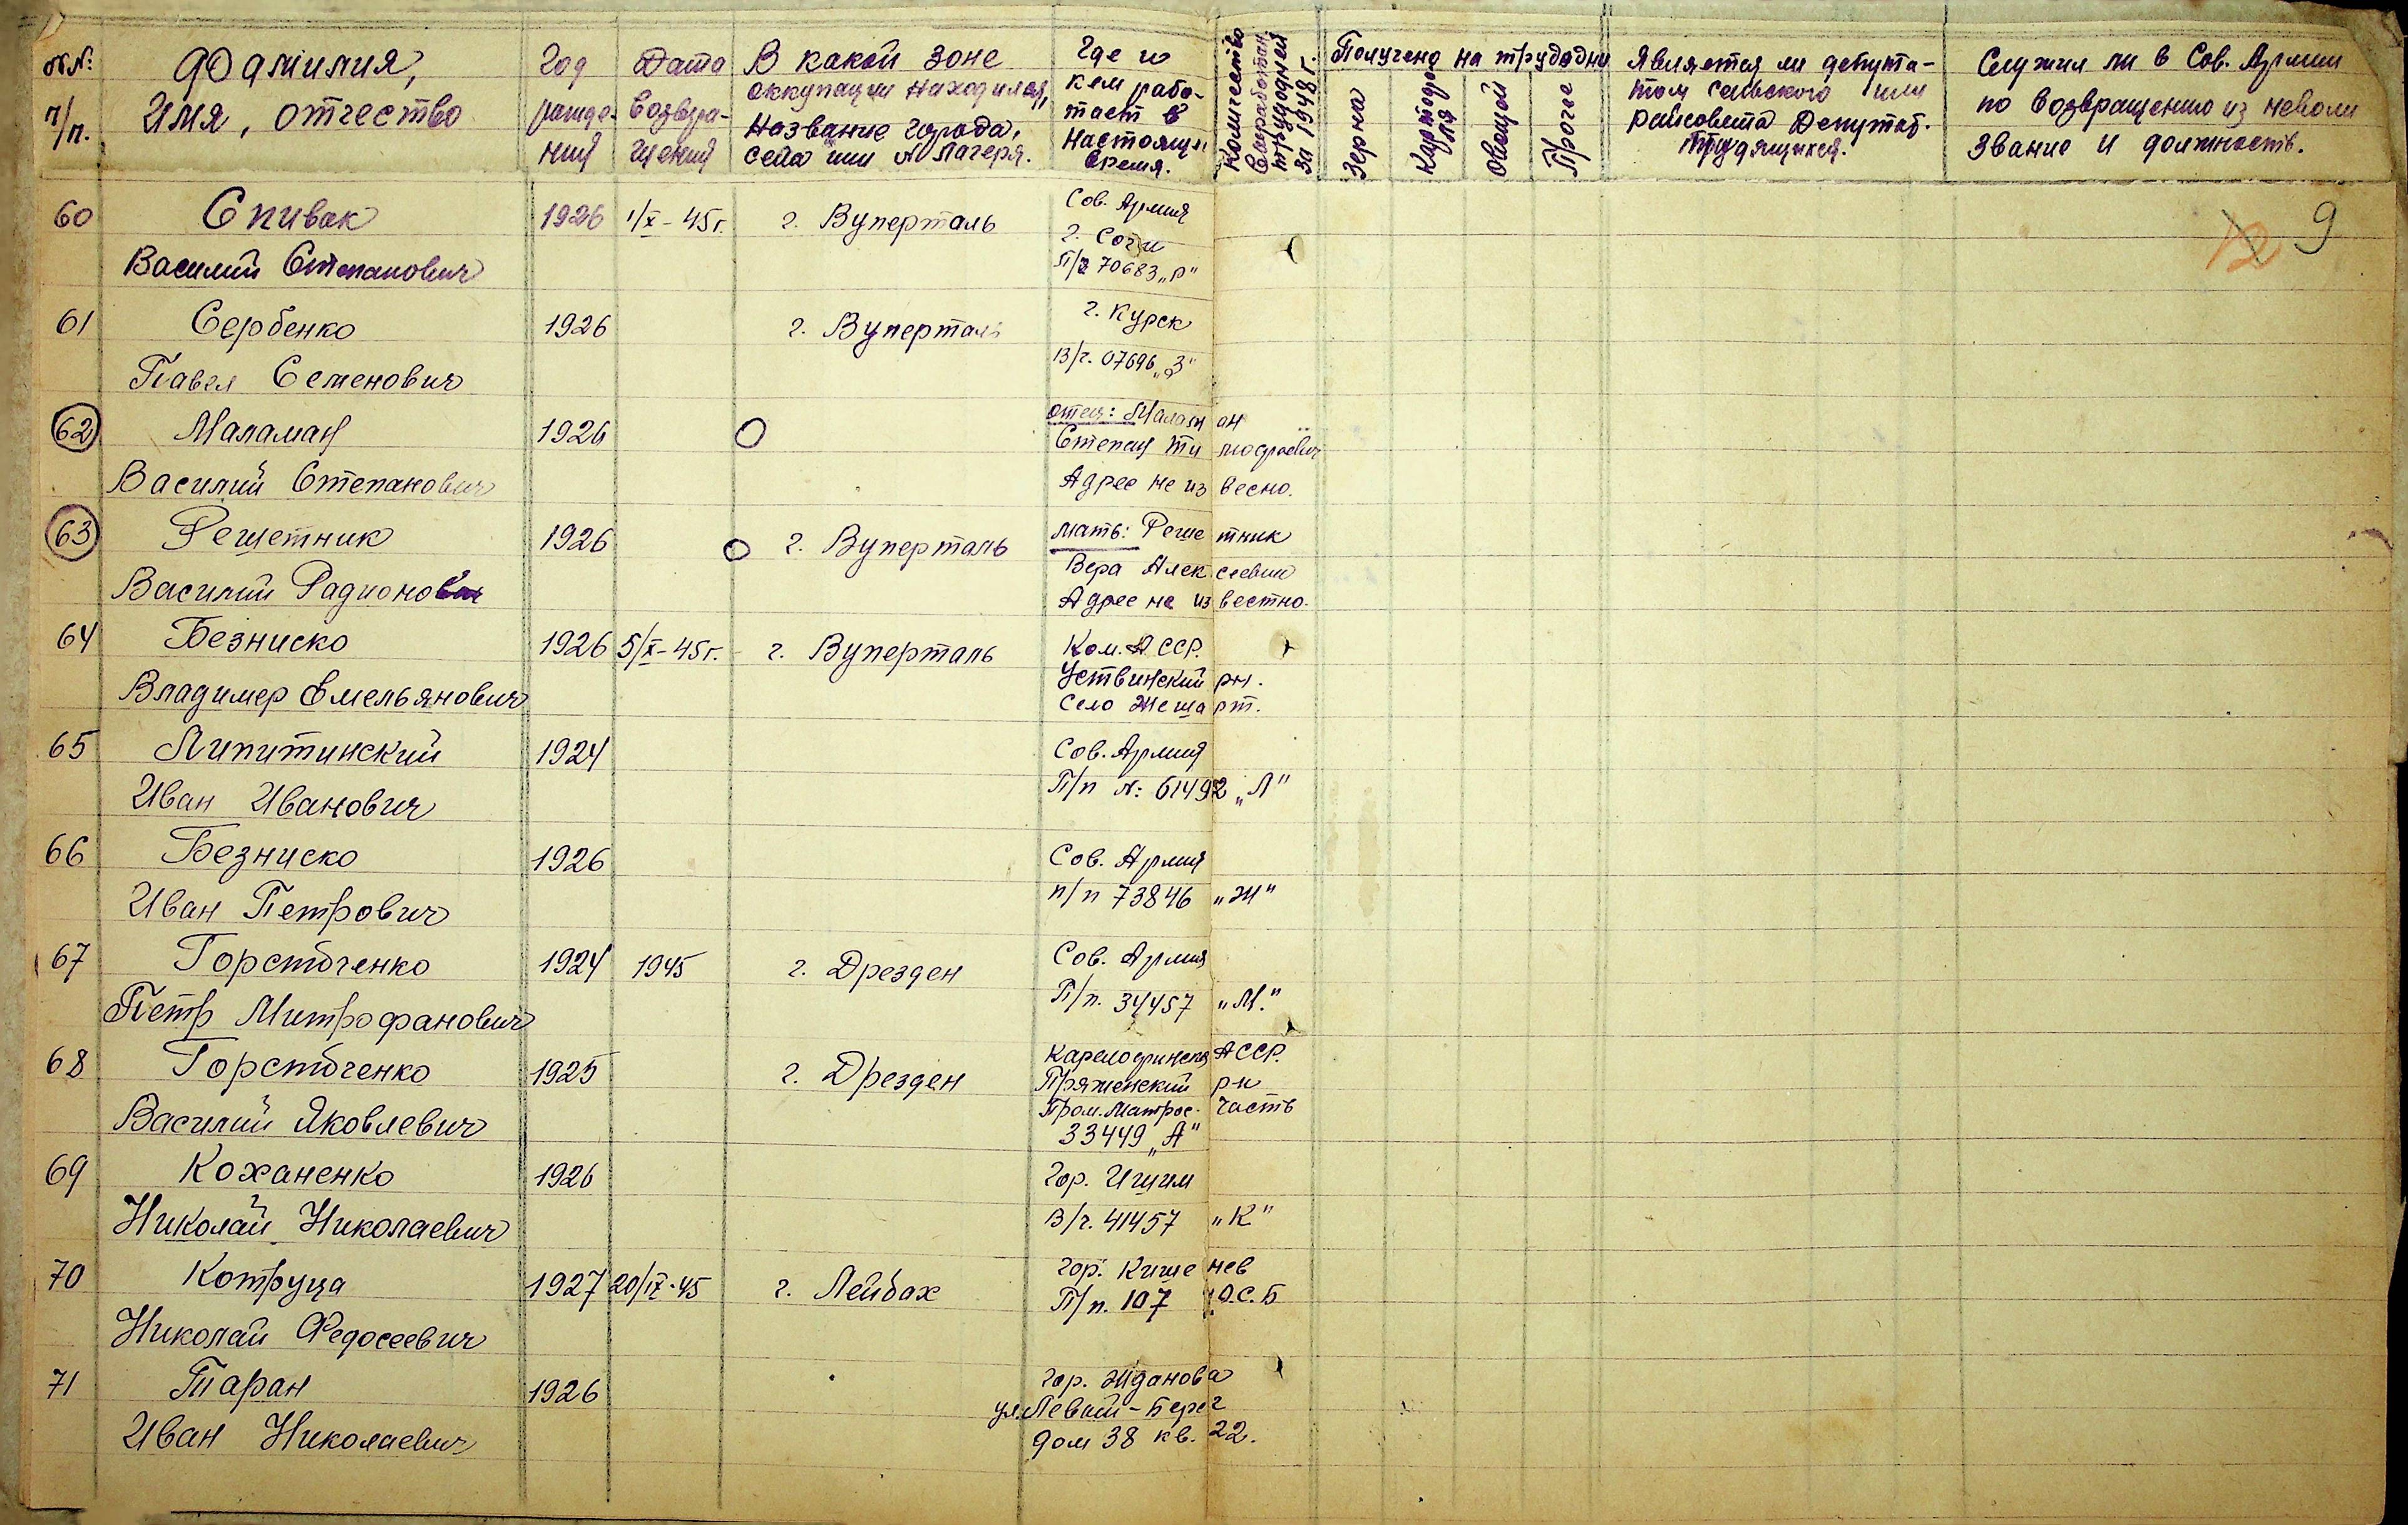 №№: п/п.
Фамилия,
Имя, отчество
Год рождения
Дата возвращения
В какой зоне
оккупации находился,
Название города,
села или № лагеря.
Где и
кем рабо-
тает в
настоящее
время.
Количество
выработан.
трудодней
за 1948 г.
Получено на трудодни
Зерна
Картофеля
Овощей
Прочие
Является ли депута-
том сельского или
райсовета Депутат.
Трудящихся.
Служил ли в Сов. Армии
по возвращению из неволи
звание и должность.
12 9
60 Спивак 1926 1/X-45г. г. Вуперталь Сов. Армия
г. Сочи
Василий Степанович П/я 70683 „Р"
61 Сербенко 1926 г. Вуперталь г. Курск
Павел Семенович В/ч. 07696 „З"
62 Маламан 1926 отец: Маламан
Степан Тимофеевич
Василий Степанович Адрес не извесно.
63 Решетник 1926 г. Вуперталь мать: Решетник
Вера Алексеевна
Василий Радионович Адрес не известно.
64 Безниско 1926 5/X-45г. г. Вуперталь Ком. АССР.
Уствинский рн.
Владимер Емельянович Село Жешарт.
65 Липитинский 1924 Сов. Армия
Иван Иванович П/п №: 61492 „Л"
66 Безниско 1926 Сов. Армия
Иван Петрович п/п 73846 „Ж"
67 Горсточенко 1924 1945 г. Дрезден Сов. Армия
Петр Митрофанович П/п. 34457 „М."
68 Горсточенко 1925 г. Дрезден АССР.
Пряженский р-н
Василий Яковлевич Пром. Матрос. часть
33449 „А"
69 Коханенко 1926 Гор. Ишим
Николай Николаевич В/ч. 41457 „К"
70 Котруца 1927 20/IX-45 г. Лейбах гор. Кишенев
П/п. 107 О.С.Б
Николай Федосеевич
71 Таран 1926 гор. Жданова
ул. Левый-Берег
Иван Николаевич дом 38 кв. 22.